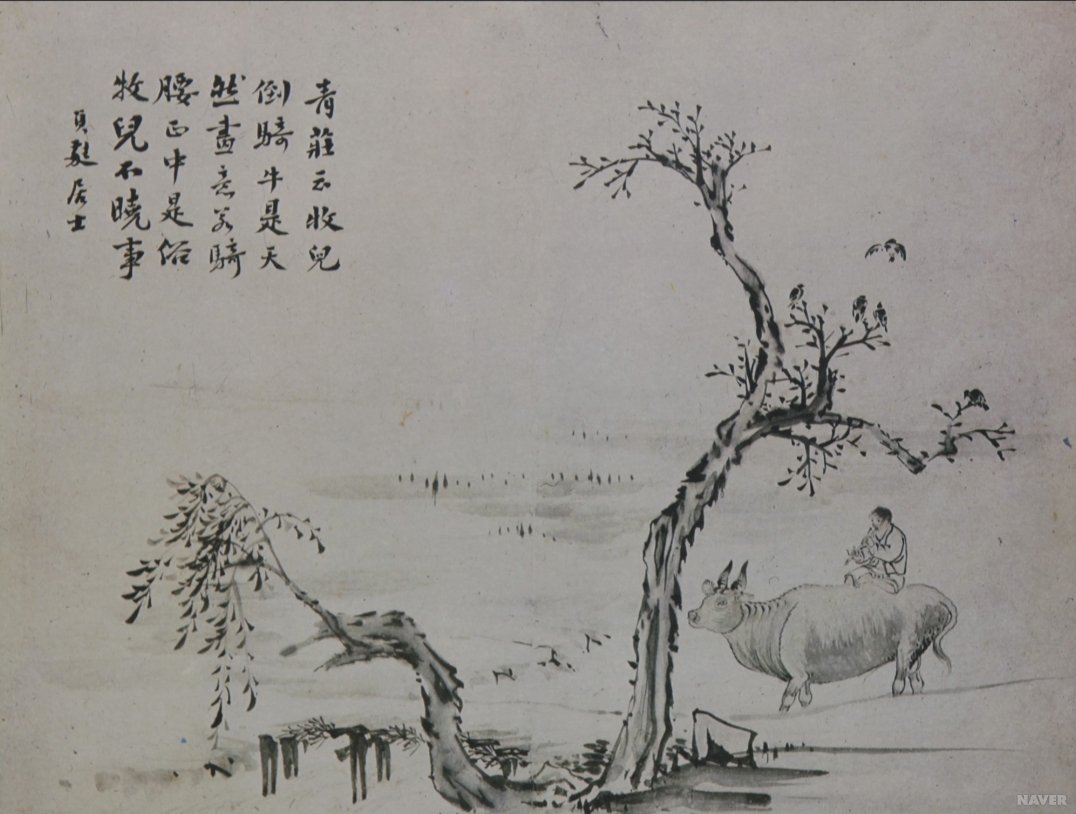 青莊云牧兒
倒騎牛是天
然畫意若騎
腰正中是俗
牧兒不曉事
貞蕤居士
NAVER